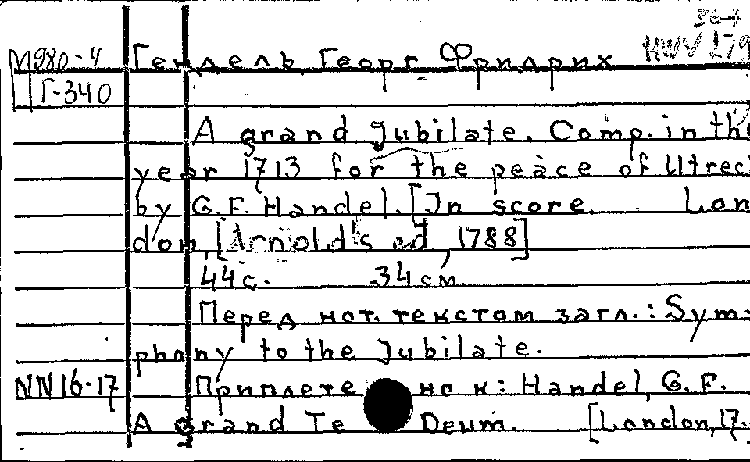 М980-4 Гендель, Георг Фридрих HWV 279
Г-340
A grand Jubilate. Comp. in the
year 1713 for the peace of Utrec
by G.F. Handel. [In score. Lon
don, [Arnold's ed, 1788]
44 с. 34 см
Перед нот. текстом загл.: Sym-
phony to the Jubilate.
NN16-17 Приплетено к: Handel, G. F.
A grand Te Deum. [London, 17.